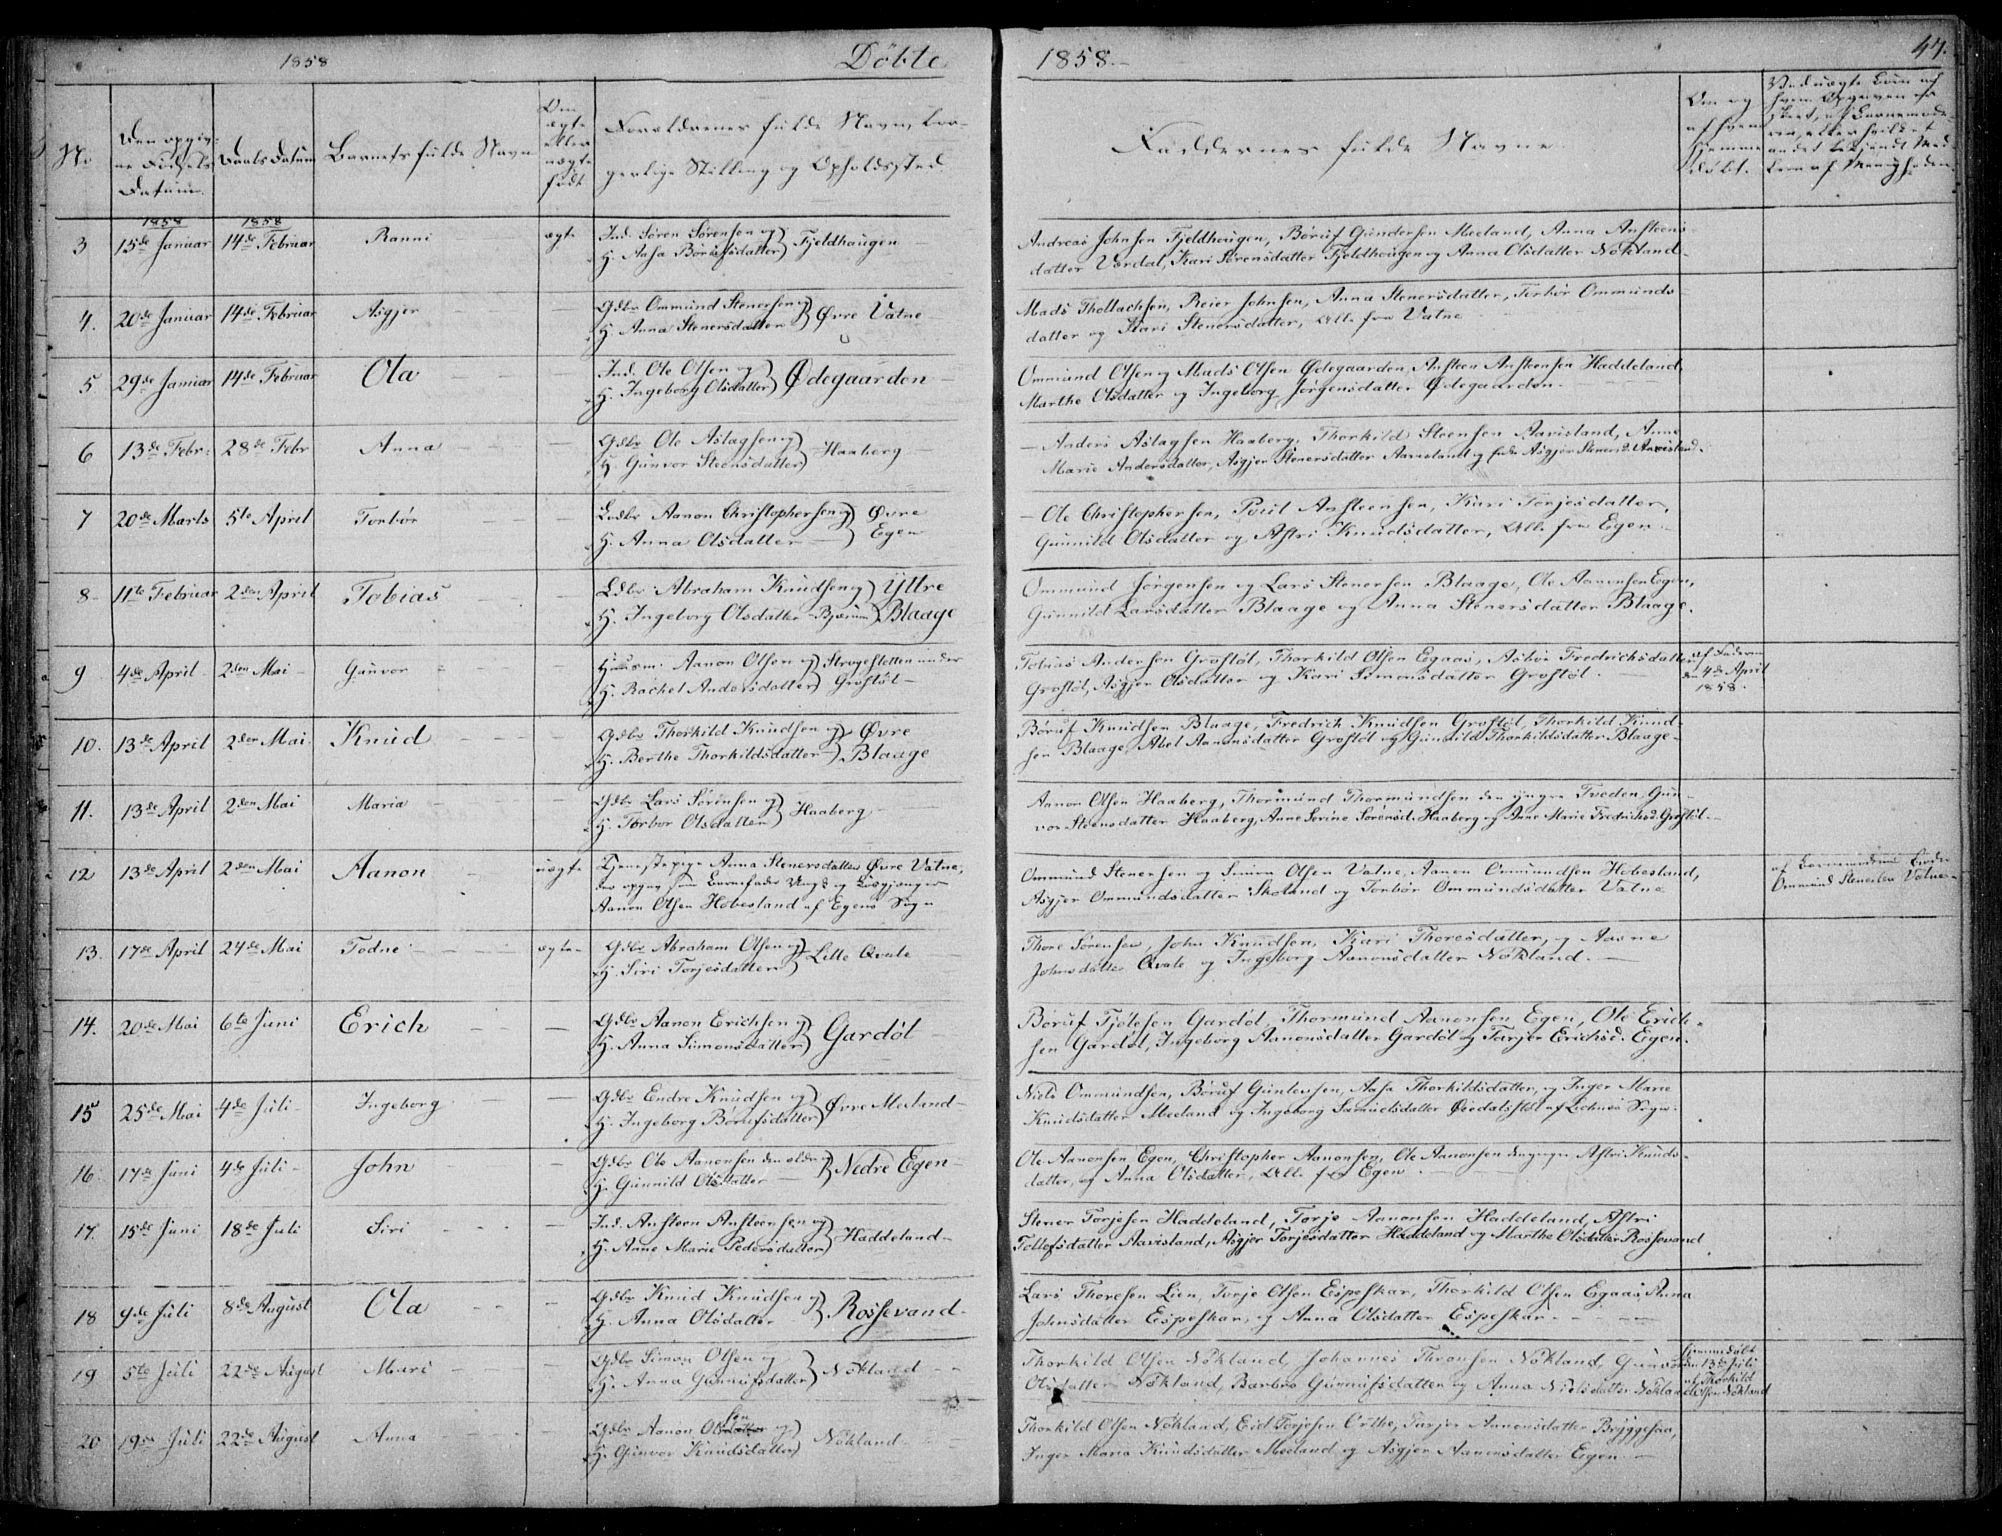 1858 Döbte 1858.- 47.
No
Den opgiv-
ne Födsels
Datum.
Daabs Datum
Barnets fulde Navn
Om
ægte
eller
uægte
födt
Forældrenes fulde Navn, bor-
gerlige Stilling og Opholdssted.
Faddernes fulde Navne.
Om og
af hvem
hjemme
döbt.
1858 1858
3 15de Januar 14de Februar Ranni ægte
Ind. Sören Sörensen og
H. Aasa Börufsdatter Fjeldhaugen
Andreas Johnsen Fjeldhougen, Böruf Gundersen Meeland, Anna Ansteens-
datter Verdal, Kari Sörensdatter Fjeldhougen og Anna Olsdatter Nökland
4. 20de Januar 14de Februar Asgjer
Gdbr Ommund Stenersen og
H. Anna Stenersdatter Øvre Vatne
Mads Thollachsen, Reier Johnsen, Anna Stenersdatter, Torbör Ommunds-
datter og Kari Stenersdatter, Alle fra Vatne
5 29de Januar 14de Februar Ola
Ind. Ole Olsen og
H. Ingeborg Olsdatter Ødegaarden
Ommund Olsen og Mads Olsen Ødegaarden, Ansteen Ansteensen Haddeland,
Marthe Olsdatter og Ingeborg Jörgensdatter Ødegaarden.
6 13de Febr: 28de Febr Anna
Gdbr Ole Aslagsen og
H. Gunvor Steensdatter Haaberg
Anders Aslagsen Haaberg, Thorkild Steensen Aavisland, Anne
Marie Andersdatter, Asgjer Stenersdatter Aavisland og Asgjer Stenersd. Aavisland.
7 20de Marts 5te April Torbör
Ledbr Aanon Christophersen og Øvre
H. Anna Olsdatter Egen
Ole Christophersen, Poul Ansteensen, Kari Torjesdatter,
Gunnild Olsdatter og Astri Knudsdatter, Alle fra Egen.
8 11te Februar 2den April Tobias
Ledbr Abraham Knudsen og Yttre
H. Ingeborg Olsdatter Blaage
Ommund Jörgensen og Lars Stenersen Blaage, Ole Aanonsen Egen,
Gunnild Larsdatter Blaage og Anna Stenersdatter Blaage.
9 4de April 2den Mai Gunvor
Huusm. Aanon Olsen og under
H. Rachel Andersdatter Grostöl
Tobias Andersen Grostöl, Thorkild Olsen Egaas, Asbör Fredrichsdatter
Grostöl, Asgjer Olsdatter og Kari Simonsdatter Grostöl.
af Faderen
den 4de April
1858.
10. 13de April 2den Mai Knud
Gdbr Thorkild Knudsen og Øvre
H. Berthe Thorkildsdatter Blaage
Böruf Knudsen Blaage, Fredrich Knudsen Grostöl, Thorkild Knud-
sen Blaage, Abel Aanonsdatter Grostöl og Gunnild Thorkildsdatter Blaage
11. 13de April 2den Mai Maria
Gdbr Lars Sörensen og
H. Torbor Olsdatter Haaberg
Aanon Olsen Haaberg, Thormund Thormundsen den yngre Tveden, Gun-
vor Steensdatter Haaberg, Anne Serine Sörensd. Haaberg og Anne Marie Fredrichsd. Grostöl.
12 13de April 2den Mai Aanon uægte
Tjenestepige Anna Stenersdatter Øvre Vatne,
der opgav som Barnefader Ungk og
Aanon Olsen Hobesland af Egens Sogn
Ommund Stenersen og Simon Olsen Vatne, Aanen Ommundsen Hobesland,
Asgjer Ommundsdatter Skoland og Torbör Ommundsdatter Vatne
af Barnemoderens Broder
Ommund Stenersen Vatne
13. 17de April 24de Mai Todne ægte
Gdbr Abraham Olsen og
H. Siri Torjesdatter Lille Qvale
Thore Sörensen, John Knudsen, Kari Thoresdatter, og Aasne
Johnsdatter Qvale og Ingeborg Aanonsdatter Nökland.
14. 20de Mai 6te Juni Erich
Gdbr Aanon Erichsen og
H. Anna Simonsdatter Gardöl
Böruf Tjölsen Gardöl, Thormund Aanonsen Egen, Ole Erich-
sen Gardöl, Ingeborg Aanonsdatter Gardöl og Tarjer Erichsd. Egen.
15 25de Mai 4de Juli Ingeborg
Gdbr Endre Knudsen og
H. Ingeborg Börufsdatter Øvre Meeland
Niels Ommundsen, Böruf Guntensen, Aasa Thorkildsdatter, og Inger Marie
Knudsdatter Meeland og Ingeborg Samuelsdatter af Sogn.
16. 17de Juni 4de Juli John
Gdbr Ole Aanonsen den eldre og
H. Gunnild Olsdatter Nedre Egen
Ole Aanonsen Egen, Christopher Aanonsen, Ole Aanonsen den yngre, Astri Knuds-
datter, og Anna Olsdatter, Alle fra Egen
17. 15de Juni 18de Juli Siri
Ind. Ansteen Ansteensen og
H. Anne Marie Pedersdatter Haddeland
Stener Torjesen Haddeland, Torje Aanonsen Haddeland, Astri
Tollefsdatter Aavisland, Asgjer Torjesdatter Haddeland og Marthe Olsdatter Rossevand
18 9de Juli 8de August Ola
Gdbr Knud Knudsen og
H. Anna Olsdatter Rossevand
Lars Thoresen Lien, Torje Olsen Espeskar, Thorkild Olsen Egaas, Anna
Johnsdatter Espeskar, og Anna Olsdatter Espeskar.
19 5te Juli 22de August Mari
Gdbr Simon Olsen og
H. Anna Gunnufsdatter Nökland
Thorkild Olsen Nökland, Johannes Thronsen Nökland, Gunvor
Olsdatter Nökland, Barbro Gunnufsdatter og Anna Nielsdatter Nökland
Hjemmedöbt
den 13de Juli
af Thorkild
Olsen Nökland
20 19de Juli 22de August Anna
Gdbr Aanon Olsen og
H. Gunvor Knudsdatter Nökland
Thorkild Olsen Nökland, Eid Torjesen Birthe, Tarjer Aanonsdatter Bryggesaa,
Inger Maria Knudsdatter Meeland og Asgjer Aanonsdatter Egen